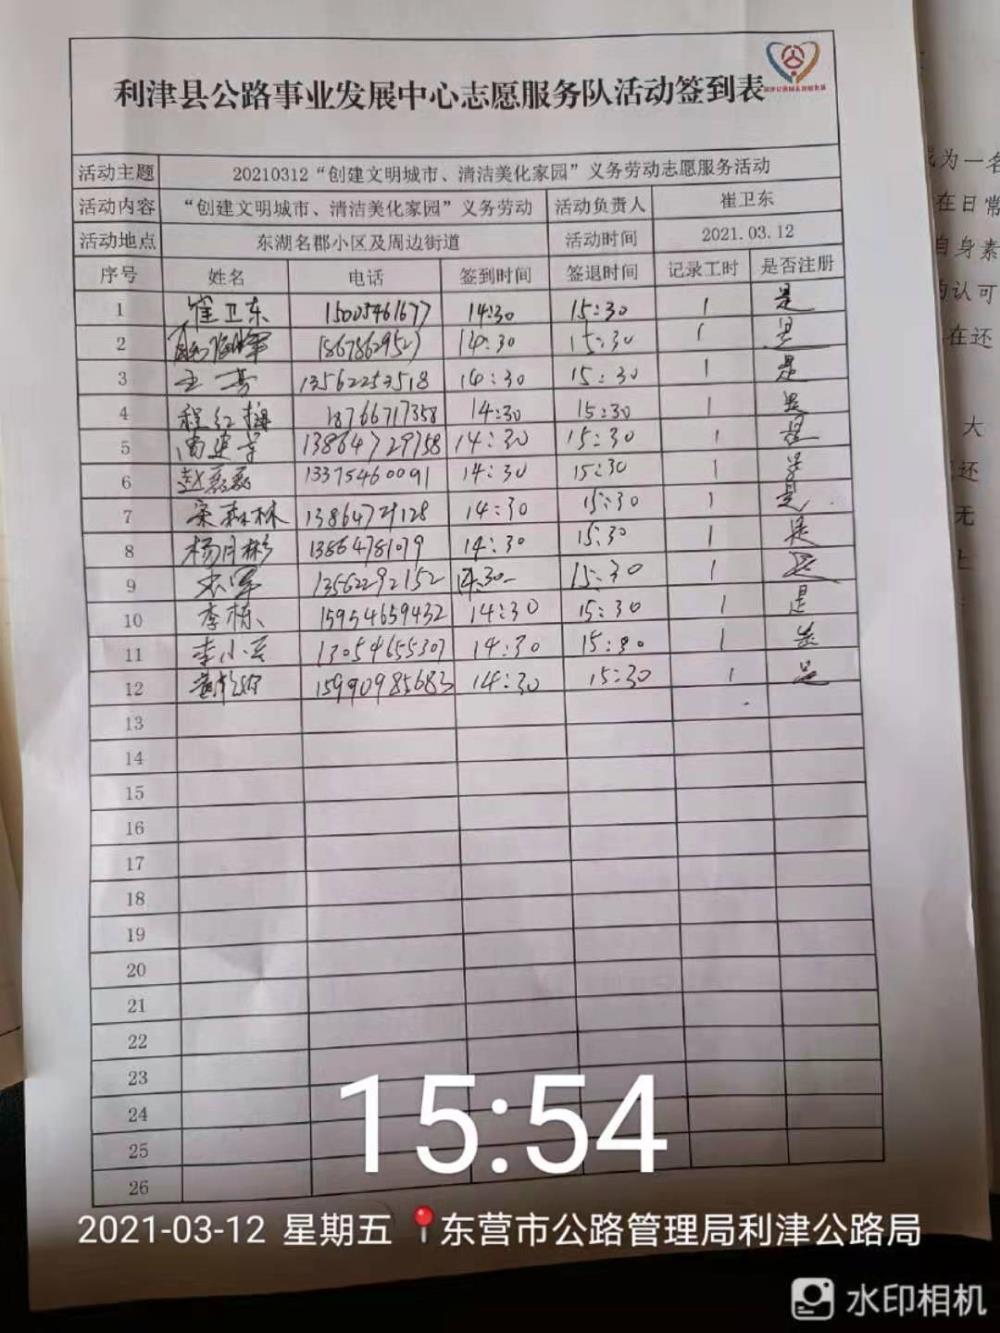 利津县公路事业发展中心志愿服务队活动签到表
活动主题 20210312“创建文明城市、清洁美化家园”义务劳动志愿服务活动
活动内容 “创建文明城市、清洁美化家园”义务劳动 活动负责人 崔卫东
活动地点 东湖名郡小区及周边街道 活动时间 2021.03.12
序号 姓名 电话 签到时间 签退时间 记录工时 是否注册
1 崔卫东 15005461677 14:30 15:30 1 是
2 14:30 15:30 1 是
3 13562253518 14:30 15:30 1 是
4 程红梅 18766717358 14:30 15:30 1 是
5 13864729758 14:30 15:30 1 是
6 赵磊磊 13375460091 14:30 15:30 1 是
7 宋森林 14:30 15:30 1 是
8 杨月彬 13864781079 14:30 15:30 1 是
9 宋军 13562292152 14:30 15:30 1 是
10 李栋 15954659432 14:30 15:30 1 是
11 13054655307 14:30 15:30 1 是
12 15990985683 14:30 15:30 1 是
13
14
15
16
17
18
19
20
21
22
23
24
25
26
为一名
在日常
自身素
的认可
在还
大
还
无
上
15:54
2021-03-12 星期五 东营市公路管理局利津公路局
水印相机